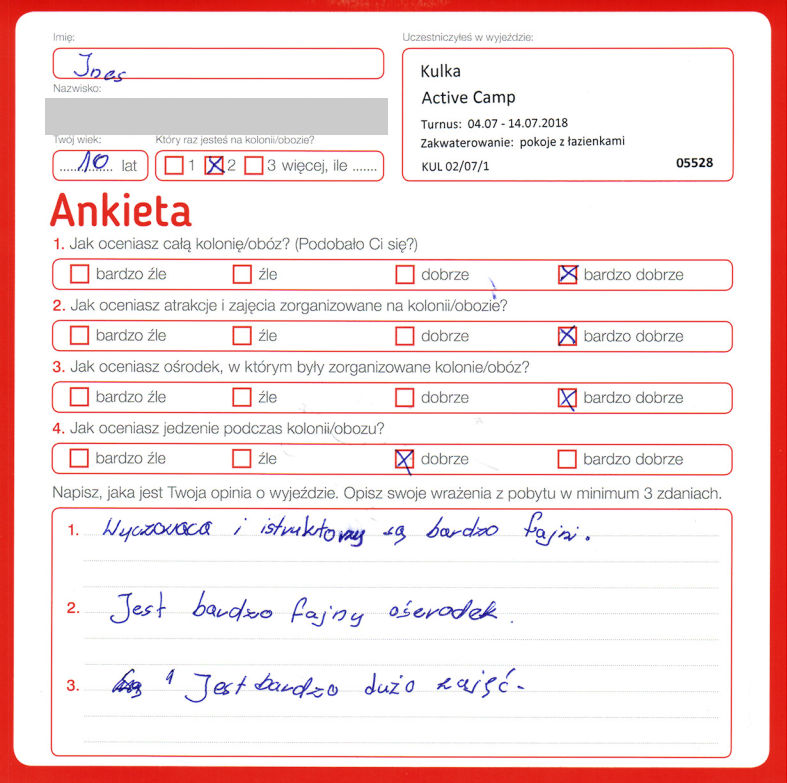 Imię:
Ines
Nazwisko:
Uczestniczyłeś w wyjeździe:
Kulka
Active Camp
Turnus: 04.07 - 14.07.2018
Zakwaterowanie: pokoje z łazienkami
KUL 02/07/1 05528
Twój wiek: Który raz jesteś na kolonii/obozie?
10 lat 1 2 3 więcej, ile .......
Ankieta
1. Jak oceniasz całą kolonię/obóz? (Podobało Ci się?)
bardzo źle źle dobrze bardzo dobrze
2. Jak oceniasz atrakcje i zajęcia zorganizowane na kolonii/obozie?
bardzo źle źle dobrze bardzo dobrze
3. Jak oceniasz ośrodek, w którym były zorganizowane kolonie/obóz?
bardzo źle źle dobrze bardzo dobrze
4. Jak oceniasz jedzenie podczas kolonii/obozu?
bardzo źle źle dobrze bardzo dobrze
Napisz, jaka jest Twoja opinia o wyjeździe. Opisz swoje wrażenia z pobytu w minimum 3 zdaniach.
1. Wyczowaca i istruktorzy są bardzo fajni.
2. Jest bardzo fajny ośerodek.
3. Jest bardzo dużo zajęć.